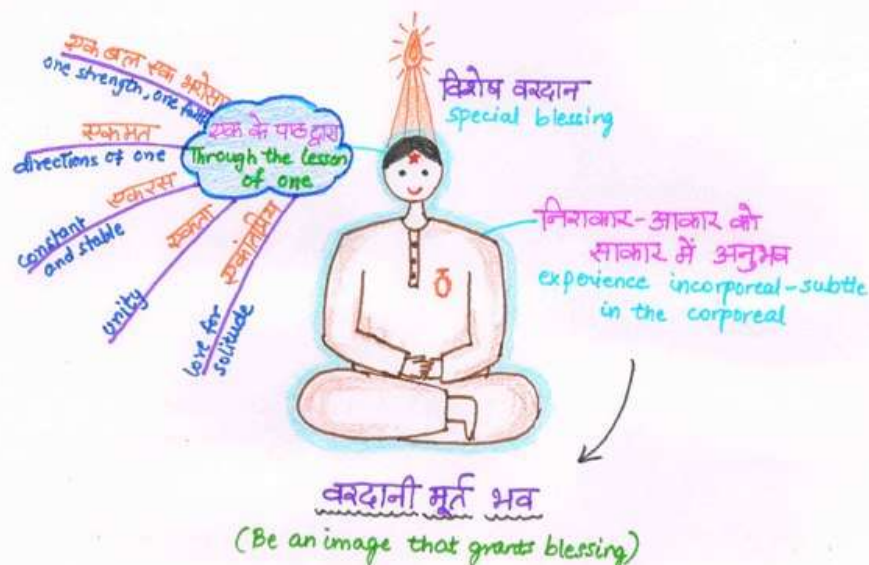 एक बल एक भरोसा
one strength, one faith
एकमत
directions of one
एकरस
constant
and stable
एकता
unity
एकांतप्रिय
love for
solitude
एक के पाठ द्वारा
Through the lesson
of one
विशेष वरदान
special blessing
निराकार-आकार को
साकार में अनुभव
experience incorporeal-subtle
in the corporeal
वरदानी मूर्त भव
(Be an image that grants blessing)